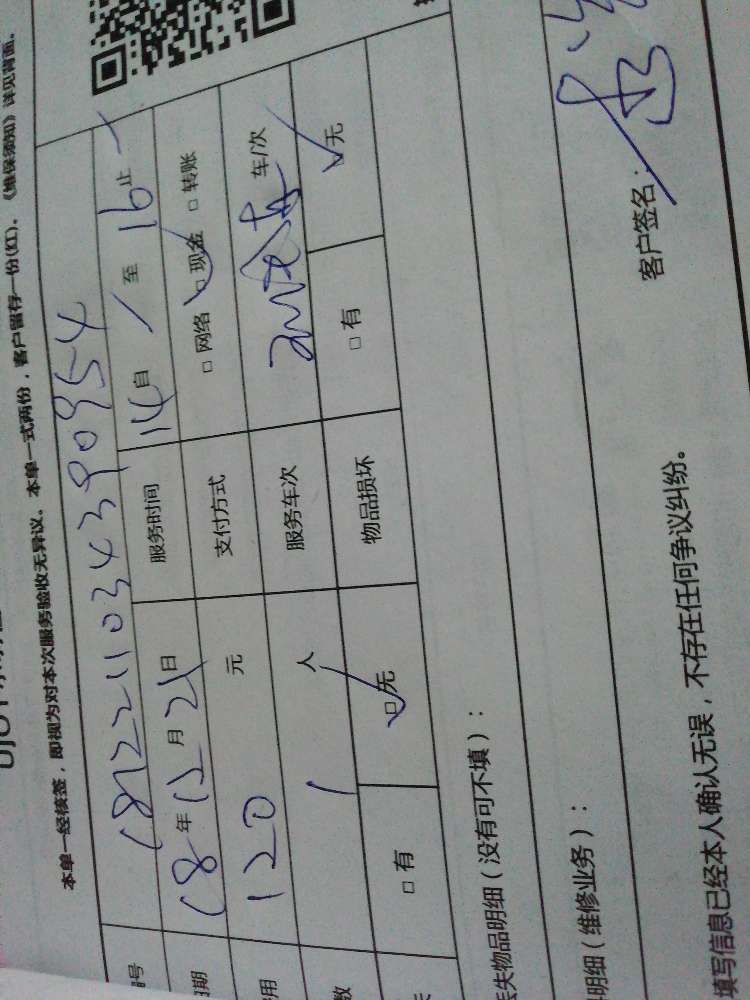 本单一经核签，即视为对本次服务验收无异议。本单一式两份，客户留存一份(红)。《维保须知》详见背面。
号 1812211034390954
期 18年12月21日 服务时间 14自 至 16止
用 120 元 支付方式 □ 网络 □ 现金 □ 转账
数 1 人 服务车次 车/次
□ 有 □ 无 物品损坏 □ 有 无
失物品明细（没有可不填）：
明细（维修业务）：
客户签名：
填写信息已经本人确认无误，不存在任何争议纠纷。